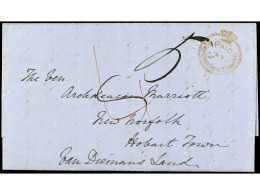 The Ven.
Archdeacon Marriott
New Norfolk
Hobart Town
Van Diemans Land